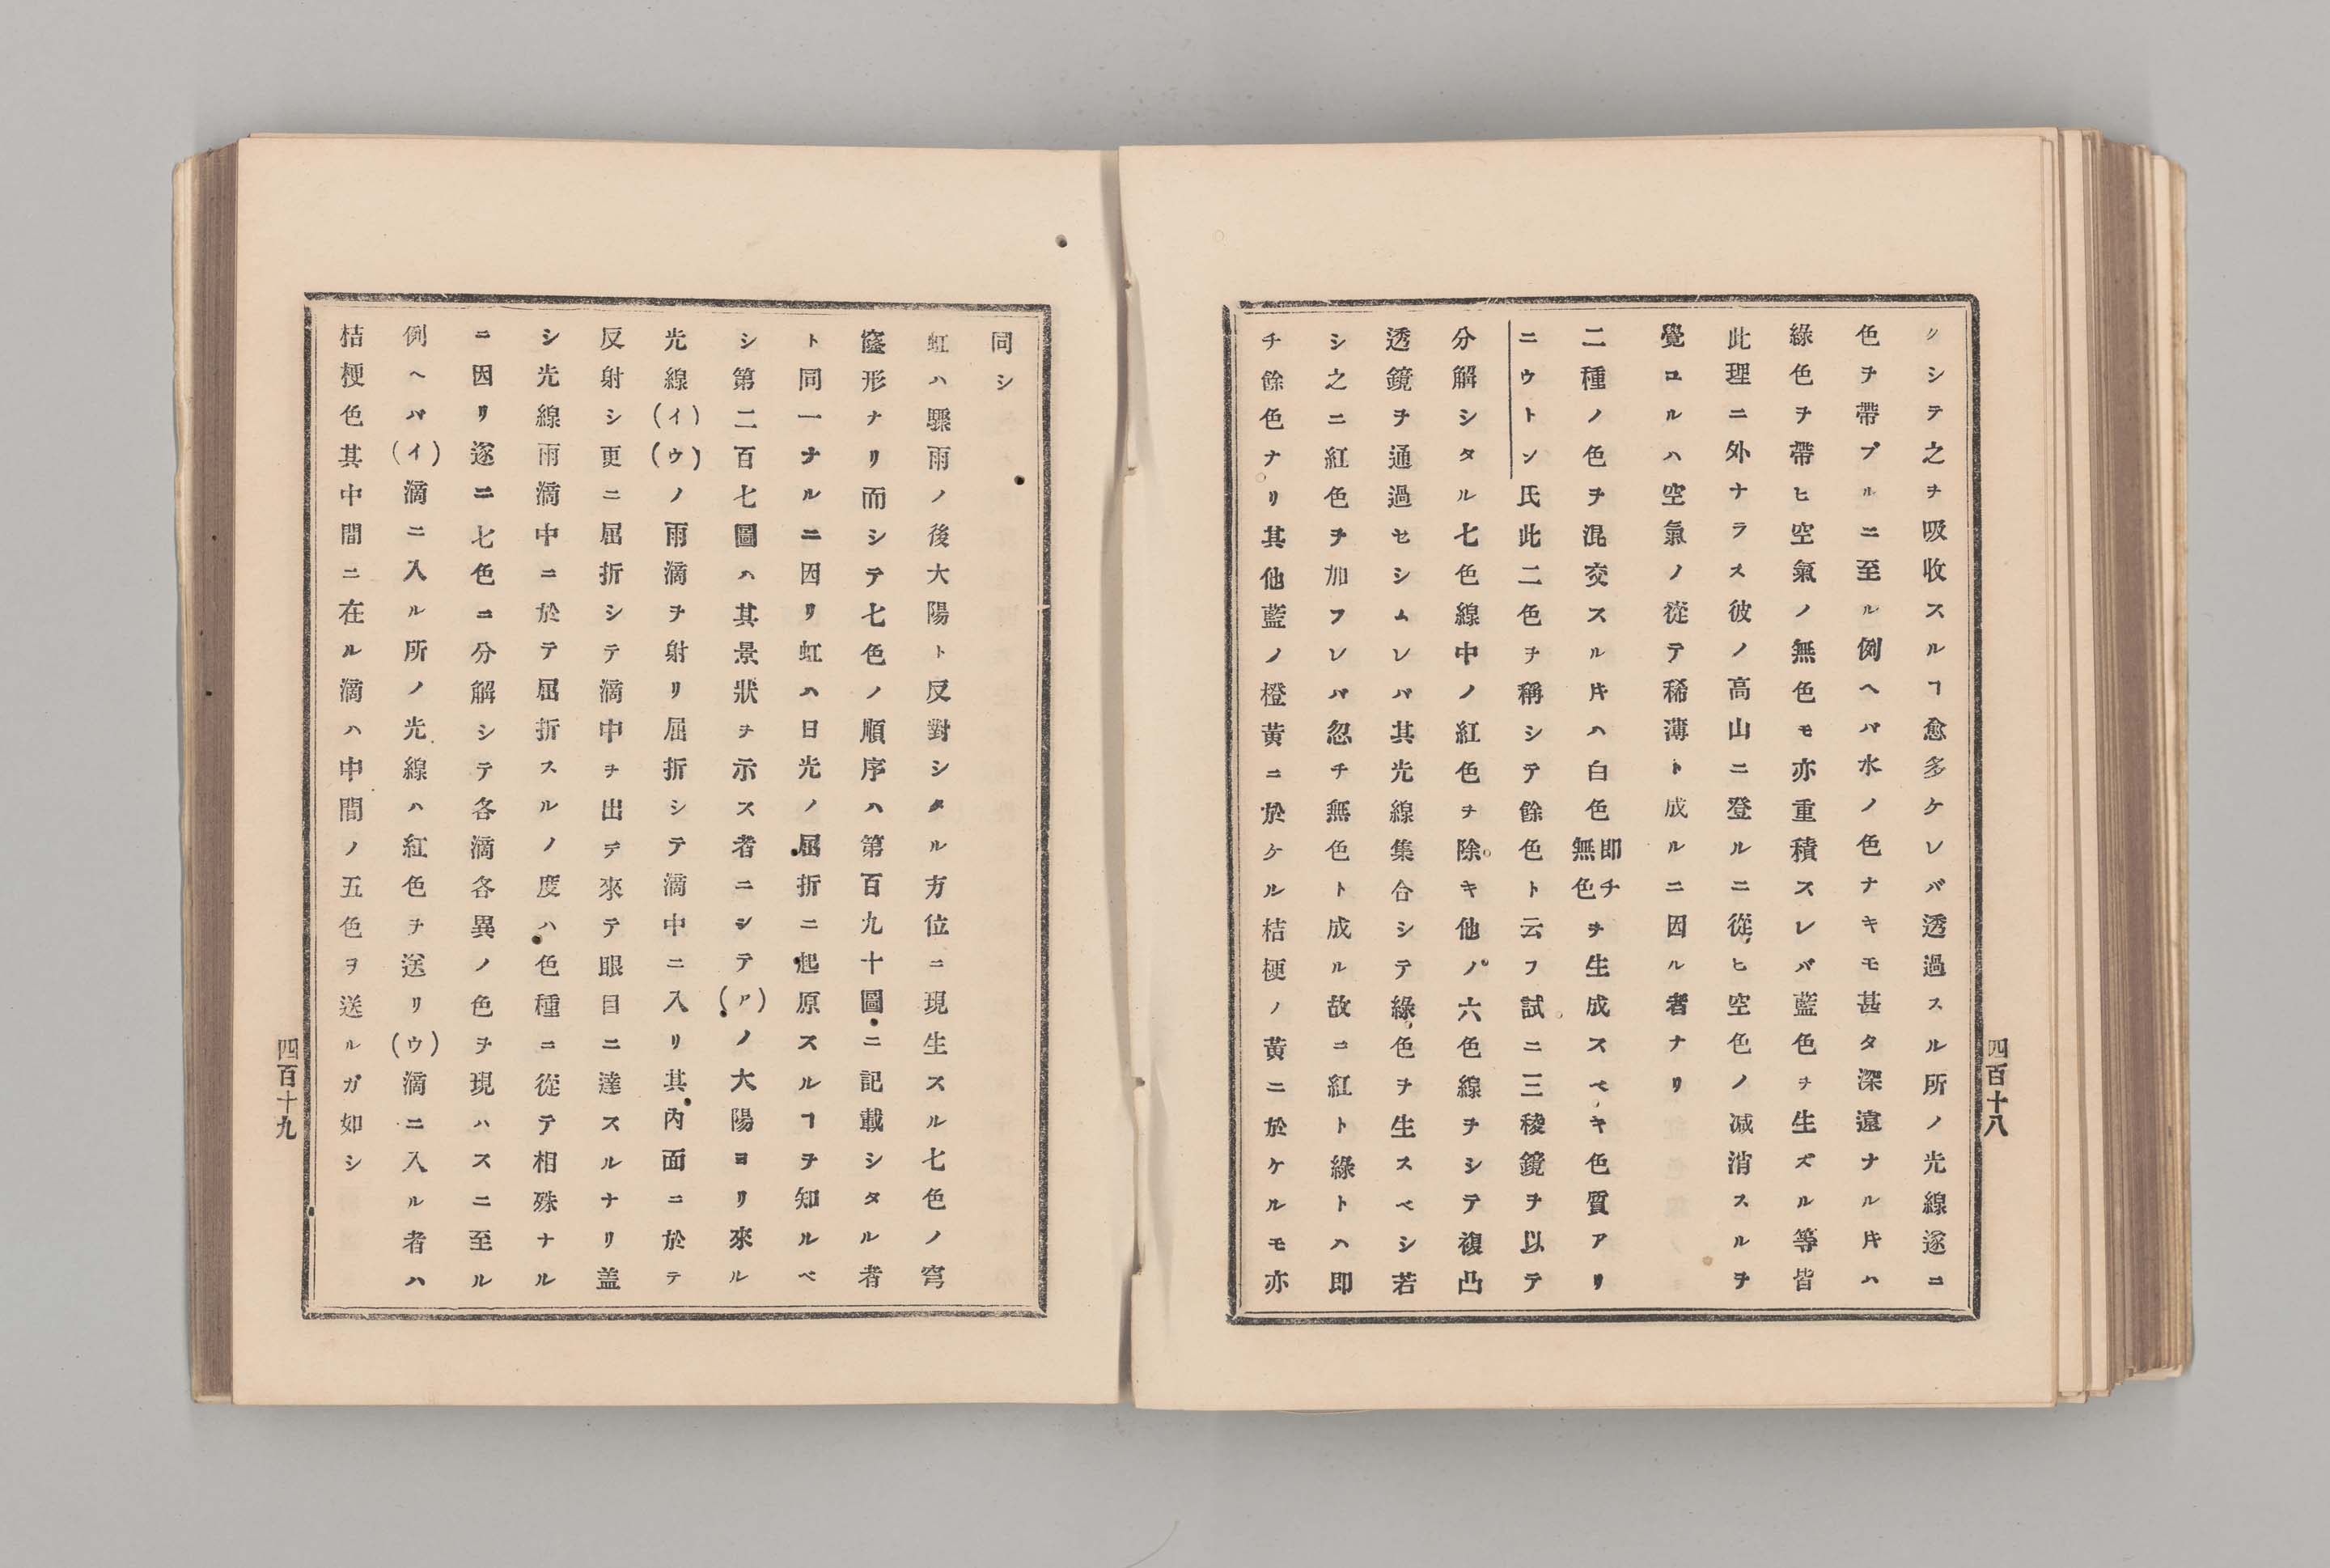 クシテ之ヲ吸收スルヿ愈多ケレバ透過スル所ノ光線遂ニ
色ヲ帶ブルニ至ル例ヘバ水ノ色ナキモ甚タ深遠ナル𪜈ハ
綠色ヲ帶ヒ空氣ノ無色モ亦重積スレバ藍色ヲ生ズル等皆
此理ニ外ナラス彼ノ高山ニ登ルニ從ヒ空色ノ减消スルヲ
覺ユルハ空氣ノ從テ稀薄ト成ルニ因ル者ナリ
二種ノ色ヲ混交スル𪜈ハ白色即チ無色ヲ生成スベキ色質アリ
ニウトン氏此二色ヲ稱シテ餘色ト云フ試ニ三稜鏡ヲ以テ
分解シタル七色線中ノ紅色ヲ除キ他ノ六色線ヲシテ複凸
透鏡ヲ通過セシムレバ其光線集合シテ綠色ヲ生スベシ若
シ之ニ紅色ヲ加フレバ忽チ無色ト成ル故ニ紅ト綠トハ即
チ餘色ナリ其他藍ノ橙黄ニ於ケル桔梗ノ黄ニ於ケルモ亦
四百十八
同シ
虹ハ驟雨ノ後大陽ト反對シタル方位ニ現生スル七色ノ穹
窿形ナリ而シテ七色ノ順序ハ第百九十圖ニ記載シタル者
ト同一ナルニ因リ虹ハ日光ノ屈折ニ起原スルヿヲ知ルベ
シ第二百七圖ハ其景狀ヲ示ス者ニシテ(ア)ノ大陽ヨリ來ル
光線(イ)(ウ)ノ雨滴ヲ射リ屈折シテ滴中ニ入リ其內面ニ於テ
反射シ更ニ屈折シテ滴中ヲ出デ來テ眼目ニ達スルナリ盖
シ光線雨滴中ニ於テ屈折スルノ度ハ色種ニ從テ相殊ナル
ニ因リ遂ニ七色ニ分解シテ各滴各異ノ色ヲ現ハスニ至ル
例ヘバ(イ)滴ニ入ル所ノ光線ハ紅色ヲ送リ(ウ)滴ニ入ル者ハ
桔梗色其中間ニ在ル滴ハ中間ノ五色ヲ送ルガ如シ
四百十九